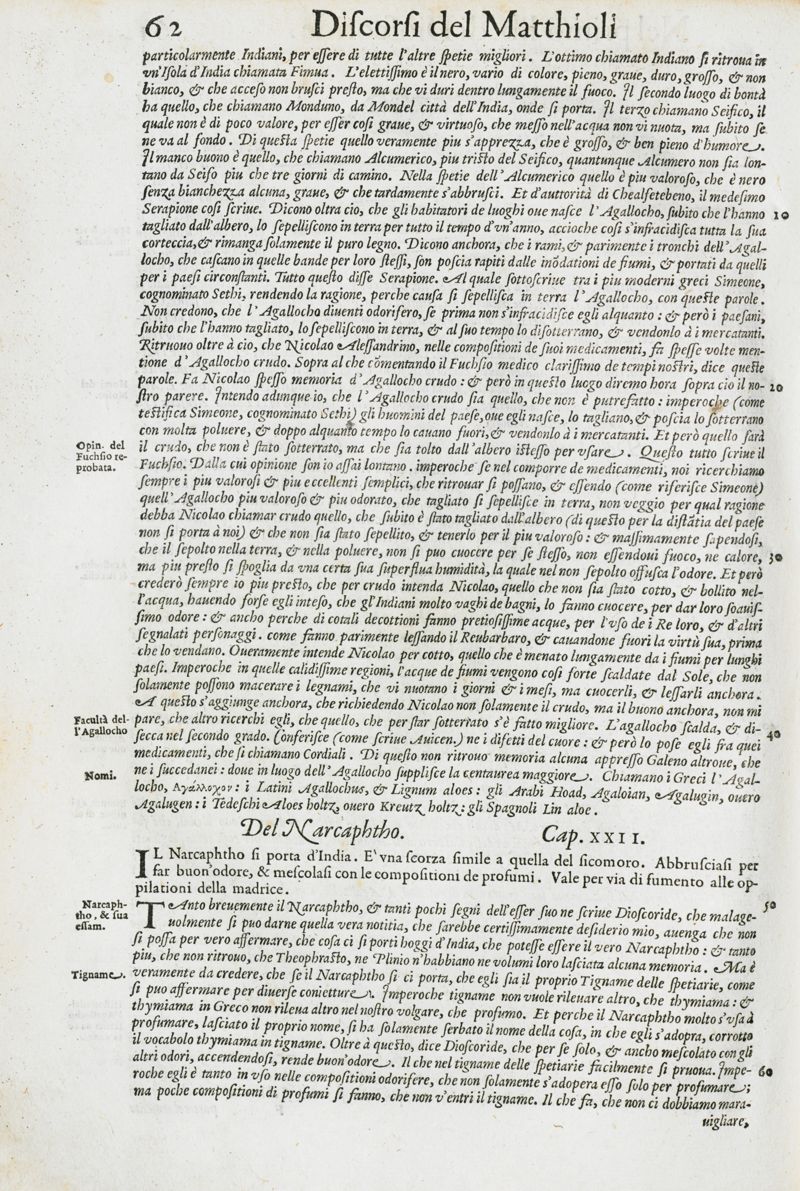 62 Diſcorſi del Matthioli
particolarmente Indiani, per eſſere di tutte l'altre ſpetie migliori. L'ottimo chiamato Indiano ſi ritroua in
vn'Iſola d'India chiamata Fimua. L'elettiſſimo è il nero, vario di colore, pieno, graue, duro, groſſo, & non
bianco, & che acceſo non bruſci preſto, ma che vi duri dentro lungamente il fuoco. Il ſecondo luogo di bontà
ha quello, che chiamano Monduno, da Mondel città dell'India, onde ſi porta. Il terzo chiamano Seifico, il
quale non è di poco valore, per eſſer coſi graue, & virtuoſo, che meſſo nell'acqua non vi nuota, ma ſubito ſe
ne va al fondo. Di queſta ſpetie quello veramente piu s'apprezza, che è groſſo, & ben pieno d'humore.
Il manco buono è quello, che chiamano Alcumerico, piu triſto del Seifico, quantunque Alcumero non ſia lon-
tano da Seifo piu che tre giorni di camino. Nella ſpetie dell'Alcumerico quello è piu valoroſo, che è nero
ſenza bianchezza alcuna, graue, & che tardamente s'abbruſci. Et d'auttorità di Chealſetebeno, il medeſimo
Serapione coſi ſcriue. Dicono oltra cio, che gli habitatori de luoghi oue naſce l'Agallocho, ſubito che l'hanno 10
tagliato dall'albero, lo ſepelliſcono in terra per tutto il tempo d'vn'anno, accioche coſi s'infracidiſca tutta la ſua
corteccia, & rimanga ſolamente il puro legno. Dicono anchora, che i rami, & parimente i tronchi dell'Agal-
locho, che caſcano in quelle bande per loro ſteſſi, ſon poſcia rapiti dalle inōdationi de fiumi, & portati da quelli
per i paeſi circonſtanti. Tutto queſto diſſe Serapione. Al quale ſottoſcriue tra i piu moderni greci Simeone,
cognominato Sethi, rendendo la ragione, perche cauſa ſi ſepelliſca in terra l'Agallocho, con queſte parole.
Non credono, che l'Agallocho diuenti odorifero, ſe prima non s'infracidiſce egli alquanto: & però i paeſani,
ſubito che l'hanno tagliato, lo ſepelliſcono in terra, & al ſuo tempo lo diſotterrano, & vendonlo à i mercatanti.
Ritruouo oltre à cio, che Nicolao Aleſſandrino, nelle compoſitioni de ſuoi medicamenti, fa ſpeſſe volte men-
tione d'Agallocho crudo. Sopra al che cōmentando il Fuchſio medico clariſſimo de tempi noſtri, dice queſte
parole. Fa Nicolao ſpeſſo memoria d'Agallocho crudo: & però in queſto luogo diremo hora ſopra cio il no- 20
ſtro parere. Intendo adunque io, che l'Agallocho crudo ſia quello, che non è putrefatto: imperoche (come
teſtifica Simeone, cognominato Sethi) gli huomini del paeſe, oue egli naſce, lo tagliano, & poſcia lo ſotterrano
con molta poluere, & doppo alquanto tempo lo cauano fuori, & vendonlo à i mercatanti. Et però quello ſarà
Opin. del Fuchſio re- probata.
il crudo, che non è ſtato ſotterrato, ma che ſia tolto dall'albero iſteſſo per vſare. Queſto tutto ſcriue il
Fuchſio. Dalla cui opinione ſon io aſſai lontano. imperoche ſe nel comporre de medicamenti, noi ricerchiamo
ſempre i piu valoroſi & piu eccellenti ſemplici, che ritrouar ſi poſſano, & eſſendo (come riferiſce Simeone)
quell'Agallocho piu valoroſo & piu odorato, che tagliato ſi ſepelliſce in terra, non veggio per qual ragione
debba Nicolao chiamar crudo quello, che ſubito è ſtato tagliato dall'albero (di queſto per la diſtātia del paeſe
non ſi porta à noi) & che non ſia ſtato ſepellito, & tenerlo per il piu valoroſo: & maſſimamente ſapendoſi,
che il ſepolto nella terra, & nella poluere, non ſi puo cuocere per ſe ſteſſo, non eſſendoui fuoco, ne calore, 30
ma piu preſto ſi ſpoglia da vna certa ſua ſuperflua humidità, la quale nel non ſepolto offuſca l'odore. Et però
crederò ſempre io piu preſto, che per crudo intenda Nicolao, quello che non ſia ſtato cotto, & bollito nel-
l'acqua, hauendo forſe egli inteſo, che gl'Indiani molto vaghi de bagni, lo fanno cuocere, per dar loro ſoauiſ-
ſimo odore: & ancho perche di cotali decottioni fanno pretioſiſſime acque, per l'vſo de i Re loro, & d'altri
ſegnalati perſonaggi. come fanno parimente leſſando il Reubarbaro, & cauandone fuori la virtù ſua, prima
che lo vendano. Oueramente intende Nicolao per cotto, quello che è menato lungamente da i fiumi per lunghi
paeſi. Imperoche in quelle calidiſſime regioni, l'acque de fiumi vengono coſi forte ſcaldate dal Sole, che non
ſolamente poſſono macerare i legnami, che vi nuotano i giorni & i meſi, ma cuocerli, & leſſarli anchora.
A queſto s'aggiunge anchora, che richiedendo Nicolao non ſolamente il crudo, ma il buono anchora, non mi
Facultà del- l'Agallocho
pare, che altro ricerchi egli, che quello, che per ſtar ſotterrato s'è fatto migliore. L'agallocho ſcalda, & di- 40
ſecca nel ſecondo grado. Conferiſce (come ſcriue Auicen.) ne i difetti del cuore: & però lo poſe egli fra quei
medicamenti, che ſi chiamano Cordiali. Di queſto non ritrouo memoria alcuna appreſſo Galeno altroue, che
Nomi.
ne i ſuccedanei: doue in luogo dell'Agallocho ſuppliſce la centaurea maggiore. Chiamano i Greci l'Agal-
locho, Αγάλλοχον: i Latini Agallochus, & Lignum aloes: gli Arabi Hoad, Agaloian, Agalugin, ouero
Agalugen: i Tedeſchi Aloes holtz, ouero Kreutz holtz: gli Spagnoli Lin aloe.
Del Narcaphtho. Cap. XXII.
IL Narcaphtho ſi porta d'India. E' vna ſcorza ſimile a quella del ſicomoro. Abbruſciaſi per
far buon'odore, & meſcolaſi con le compoſitioni de profumi. Vale per via di fumento alle op-
pilationi della madrice.
Narcaph- tho, & ſua eſſam.
TAnto breuemente il Narcaphtho, & tanti pochi ſegni dell'eſſer ſuo ne ſcriue Dioſcoride, che malage- 50
uolmente ſi puo darne quella vera notitia, che ſarebbe certiſſimamente deſiderio mio, auenga che non
ſi poſſa per vero affermare, che coſa ci ſi porti hoggi d'India, che poteſſe eſſere il vero Narcaphtho: & tanto
piu, che non ritrouo, che Theophraſto, ne Plinio n'habbiano ne volumi loro laſciata alcuna memoria. Ma è
Tigname.
veramente da credere, che ſe il Narcaphtho ſi ci porta, che egli ſia il proprio Tigname delle ſpetiarie, come
ſi puo affermare per diuerſe conietture. Imperoche tigname non vuole rileuare altro, che thymiama: &
thymiama in Greco non rileua altro nel noſtro volgare, che profumo. Et perche il Narcaphtho molto s'vſa à
profumare, laſciato il proprio nome, ſi ha ſolamente ſerbato il nome della coſa, in che egli s'adopra, corrotto
il vocabolo thymiama in tigname. Oltre à queſto, dice Dioſcoride, che per ſe ſolo, & ancho meſcolato con gli
altri odori, accendendoſi, rende buon'odore. Il che nel tigname delle ſpetiarie facilmente ſi pruoua. Impe- 60
roche egli è tanto in vſo nelle compoſitioni odorifere, che non ſolamente s'adopera eſſo ſolo per profumare;
ma poche compoſitioni di profumi ſi fanno, che non v'entri il tigname. Il che fa, che non ci dobbiamo mara-
uigliare,